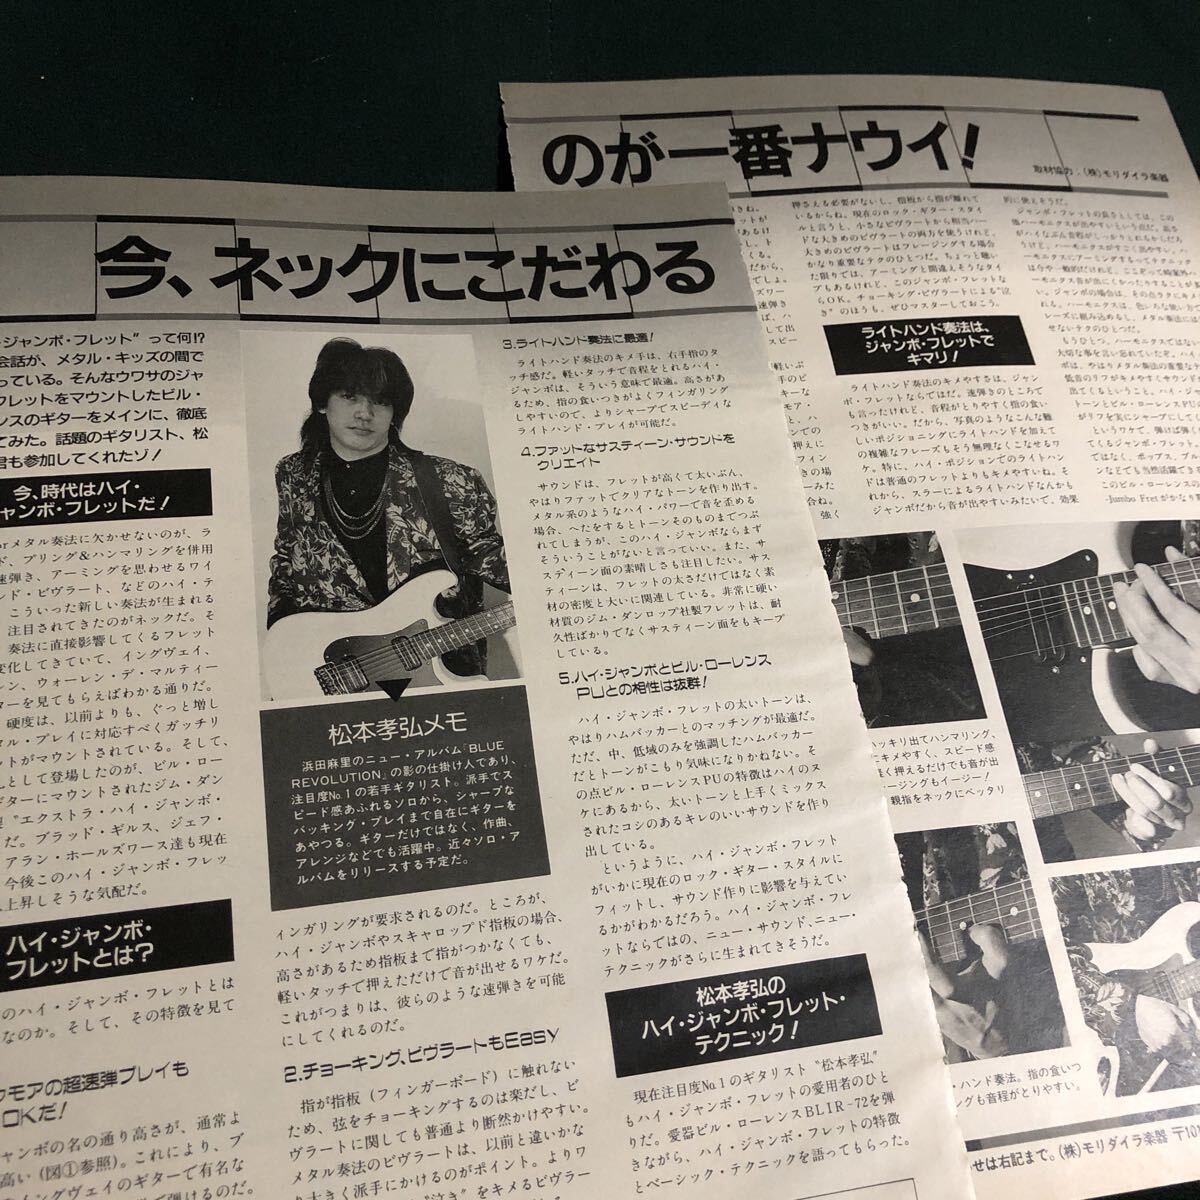 今、ネックにこだわる
・ジャンボ・フレット”って何!?
会話が、メタル・キッズの間で
っている。そんなウワサのジャ
フレットをマウントしたビル・
レンスのギターをメインに、徹底
てみた。話題のギタリスト、松
君も参加してくれたゾ!
今、時代はハイ・
ャンボ・フレットだ!
orメタル奏法に欠かせないのが、ラ
ド、プリング&ハンマリングを併用
速弾き、アーミングを思わせるワイ
ンド・ビヴラート、などのハイ・テ
こういった新しい奏法が生まれる
注目されてきたのがネックだ。そ
奏法に直接影響してくるフレット
変化してきていて、イングヴェイ、
レン、ウォーレン・デ・マルティー
ターを見てもらえばわかる通りだ。
硬度は、以前よりも、ぐっと増し
タル・プレイに対応すべくガッチリ
ットがマウントされている。そして、
として登場したのが、ビル・ロー
ギターにマウントされたジム・ダン
“エクストラ・ハイ・ジャンボ・
だ。ブラッド・ギルス、ジェフ・
アラン・ホールズワース達も現在
今後このハイ・ジャンボ・フレッ
上昇しそうな気配だ。
ハイ・ジャンボ・
フレットとは?
のハイ・ジャンボ・フレットとは
なのか。そして、その特徴を見て
クモアの超速弾プレイも
OKだ!
ャンボの名の通り高さが、通常よ
高い(図①参照)。これにより、ブ
イングヴェイのギターで有名な
松本孝弘メモ
浜田麻里のニュー・アルバム『BLUE
REVOLUTION』の影の仕掛け人であり、
注目度No.1の若手ギタリスト。派手でス
ピード感あふれるソロから、シャープな
バッキング・プレイまで自在にギターを
あやつる。ギターだけではなく、作曲、
アレンジなどでも活躍中。近々ソロ・ア
ルバムをリリースする予定だ。
ィンガリングが要求されるのだ。ところが、
ハイ・ジャンボやスキャロップド指板の場合、
高さがあるため指板まで指がつかなくても、
軽いタッチで押えただけで音が出せるワケだ。
これがつまりは、彼らのような速弾きを可能
にしてくれるのだ。
2.チョーキング、ビヴラートもEasy
指が指板(フィンガーボード)に触れない
ため、弦をチョーキングするのは楽だし、ビ
ヴラートに関しても普通より断然かけやすい。
メタル奏法のビヴラートは、以前と違いかな
り大きく派手にかけるのがポイント。よりワ
“泣き”をキメるビヴラ
3.ライトハンド奏法に最適!
ライトハンド奏法のキメ手は、右手指のタ
ッチ感だ。軽いタッチで音程をとれるハイ・
ジャンボは、そういう意味で最適。高さがあ
るため、指の食いつきがよくフィンガリング
しやすいので、よりシャープでスピーディな
ライトハンド・プレイが可能だ。
4.ファットなサスティーン・サウンドを
クリエイト
サウンドは、フレットが高くて太いぶん、
やはりファットでクリアなトーンを作り出す。
メタル系のようなハイ・パワーで音を歪める
場合、へたをするとトーンそのものまでつぶ
れてしまうが、このハイ・ジャンボならまず
そういうことがないと言っていい。また、サ
スティーン面の素晴しさも注目したい。サス
ティーンは、フレットの太さだけではなく素
材の密度と大いに関連している。非常に硬い
材質のジム・ダンロップ社製フレットは、耐
久性ばかりでなくサスティーン面をもキープ
している。
5.ハイ・ジャンボとビル・ローレンス
PUとの相性は抜群!
ハイ・ジャンボ・フレットの太いトーンは、
やはりハムバッカーとのマッチングが最適だ。
ただ、中、低域のみを強調したハムバッカー
だとトーンがこもり気味になりかねない。そ
の点ビル・ローレンスPUの特徴はハイのヌ
ケにあるから、太いトーンと上手くミックス
されたコシのあるキレのいいサウンドを作り
出している。
というように、ハイ・ジャンボ・フレット
がいかに現在のロック・ギター・スタイルに
フィットし、サウンド作りに影響を与えてい
るかがわかるだろう。ハイ・ジャンボ・フレ
ットならではの、ニュー・サウンド、ニュー・
テクニックがさらに生まれてきそうだ。
松本孝弘の
ハイ・ジャンボ・フレット・
テクニック!
現在注目度No.1のギタリスト“松本孝弘”
もハイ・ジャンボ・フレットの愛用者のひと
りだ。愛器ビル・ローレンスBLIR-72を弾
きながら、ハイ・ジャンボ・フレットの特徴
とベーシック・テクニックを語ってもらった。
のが一番ナウイ!
取材協力:(株)モリダイラ楽器
押さえる必要がないし、指板から指が離れて
いるからね。現在のロック・ギター・スタイ
ルと言うと、小さなビヴラートから相当ハー
ドな大きめのビヴラートの両方を使うけれど、
大きめのビヴラートはフレージングする場合
かなり重要なテクのひとつだ。ちょっと聴い
た限りでは、アーミングと間違えそうなタイ
プもあるけれど、このジャンボ・フレットな
らOK。チョーキング・ビヴラートによる“泣
き”のほうも、ぜひマスターしておこう。
ライトハンド奏法は、
ジャンボ・フレットで
キマリ!
ライトハンド奏法のキメやすさは、ジャン
ボ・フレットならではだ。速弾きのところで
も言ったけれど、音程がとりやすく指の食い
つきがいい。だから、写真のようなこんな難
しいポジショニングにライトハンドを加えて
の複雑なフレーズもそう無理なくこなせるワ
ケ。特に、ハイ・ポジションでのライトハン
ドは普通のフレットよりもキメやすいね。そ
れから、スラーによるライトハンドなんかも
ジャンボだから音が出やすいみたいで、効果
的に使えそうだ。
ジャンボ・フレットの良さとしては、この
他ハーモニクスが出やすいという点だ。高さ
もうひとつ、ハーモニクスではない
大切な事を言い忘れていたぞ。ハイ・
-Jumbo Fretがかなり
ッキリ出てハンマリング、
にキメやすく、スピード感
く押えるだけでも音が出
ージングもイージー!
親指をネックにペッタリ
・ハンド奏法。指の食いつ
ングも音程がとりやすい。
せは右記まで。(株)モリダイラ楽器